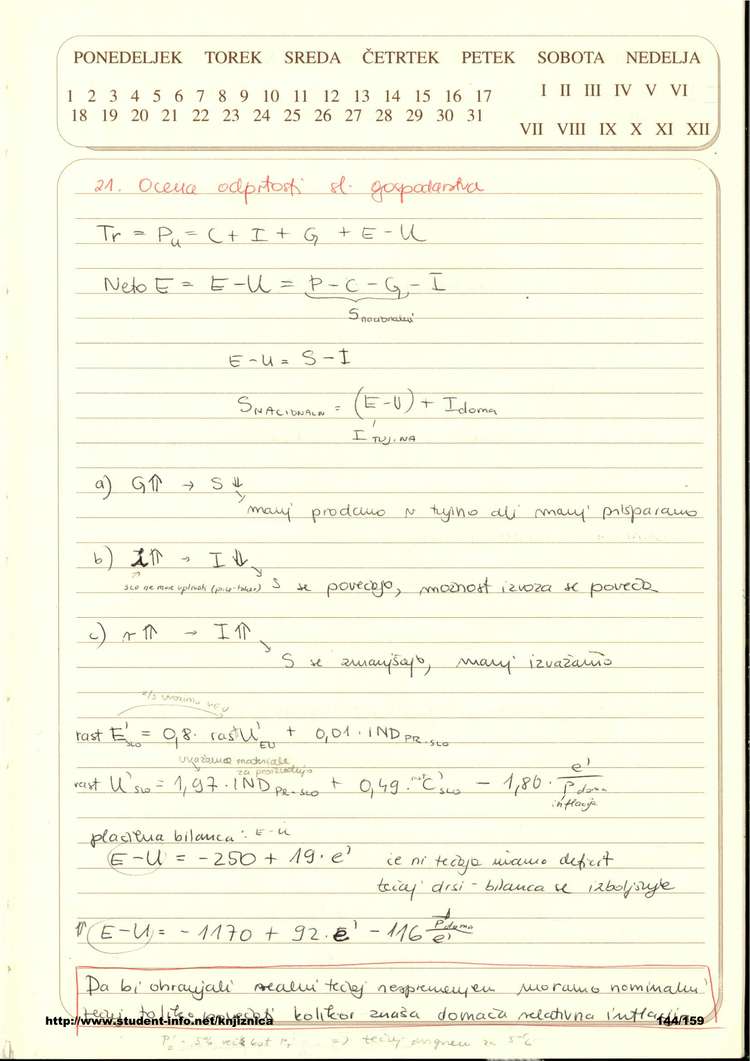 PONEDELJEK TOREK SREDA ČETRTEK PETEK SOBOTA NEDELJA
1 2 3 4 5 6 7 8 9 10 11 12 13 14 15 16 17
I II III IV V VI
18 19 20 21 22 23 24 25 26 27 28 29 30 31
VII VIII IX X XI XII
21. Ocena odprtosti sl. gospodarstva
Tr = Pu = C + I + G + E - U
Neto E = E - U = P - C - G - I
S nacionalni
E - U = S - I
S NACIONALN = (E - U) + I doma
I TUJINA
a) G⇑ → S ⇓
manj prodamo v tujino ali manj prišparamo
b) i⇑ → I ⇓
slo ne more vplivati (price-taker) S se povečajo, možnost izvoza se poveča
c) r⇑ → I⇑
S se zmanjšajo, manj izvažamo
2/3 izvozimo v EU
rast E'slo = 0,8 · rast U'EU + 0,01 · IND PR-SLO
uvažamo materiale
za proizvodnjo
rast U'SLO = 1,97 · IND PR-SLO + 0,49 · rast C'SLO - 1,80 · e' / P doma
inflacija
plačilna bilanca: E - U
E - U = -250 + 19 · e' če ni tečaja imamo deficit
tečaj drsi - bilanca se izboljšuje
⇑ E - U = -1170 + 92 · e' - 116 P doma / e'
Da bi ohranjali realni tečaj nespremenjen moramo nominalni
tečaj toliko povečati kolikor znaša domača relativna inflacija
http://www.student-info.net/knjiznica
144/159
5% več kot => tečaj za 5%